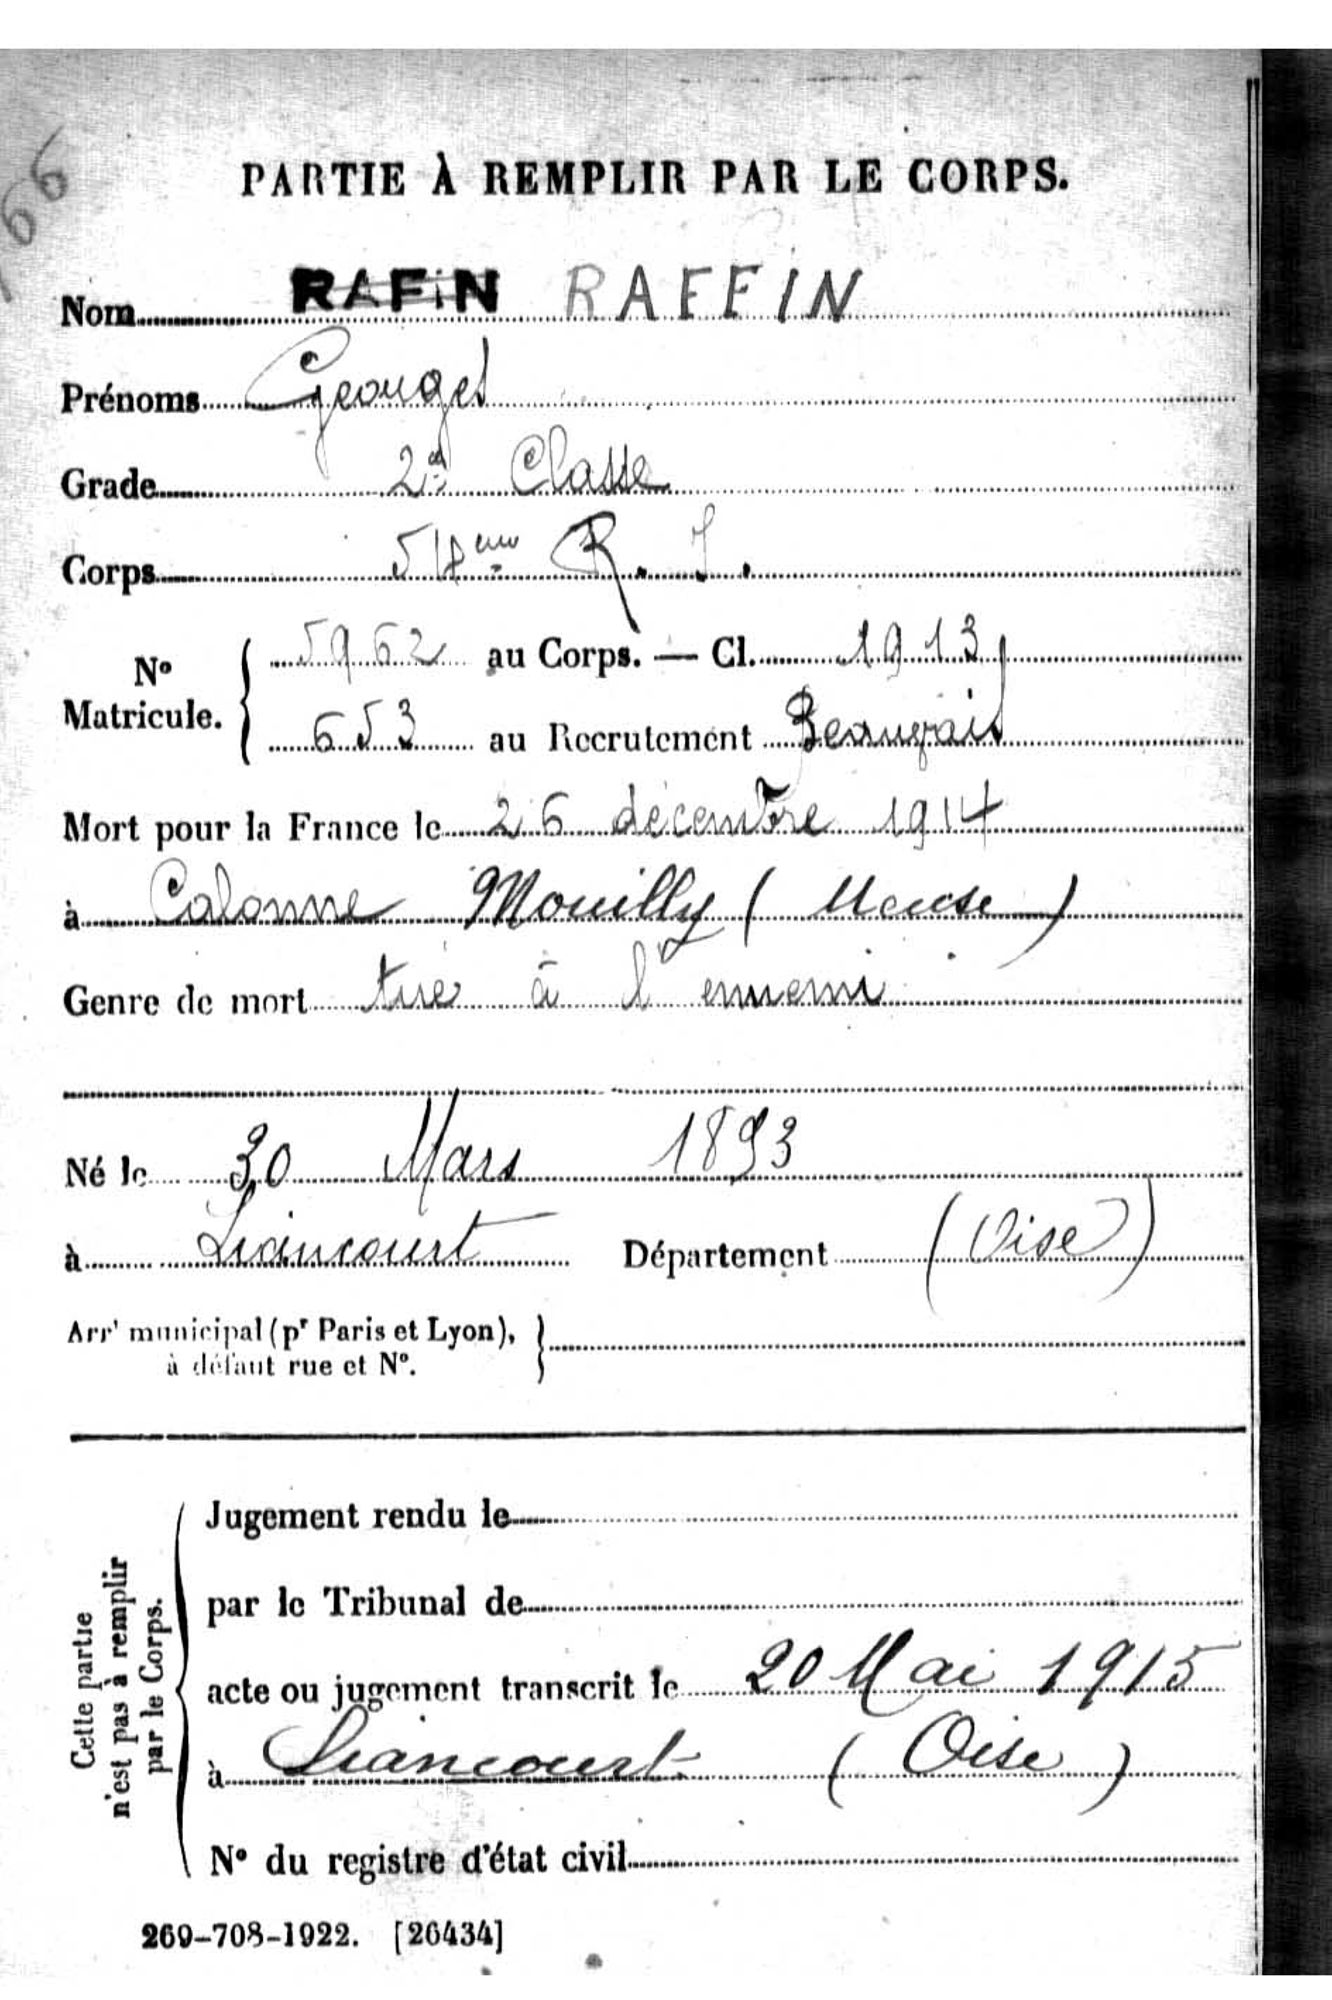 166
PARTIE À REMPLIR PAR LE CORPS.
Nom RAFiN RAFFIN
Prénoms Georges
Grade 2e Classe
Corps 54ème R. I.
No Matricule. 5962 au Corps. — Cl. 1913
653 au Recrutement Beauvais
Mort pour la France le 26 décembre 1914
à Calonne Mouilly (Meuse)
Genre de mort tué à l'ennemi
Né le 30 Mars 1893
à Liancourt Département (Oise)
Arrt municipal (pr Paris et Lyon),
à défaut rue et No.
Cette partie
n'est pas à remplir
par le Corps.
Jugement rendu le
par le Tribunal de
acte ou jugement transcrit le 20 Mai 1915
à Liancourt (Oise)
No du registre d'état civil
269-708-1922. [26434]